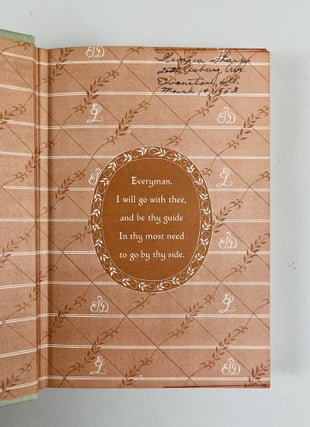 Georgia Sharp
Asbury Ave.
Evanston, Ill.
March 14, 1963
Everyman,
I will go with thee,
and be thy guide
In thy most need
to go by thy side.